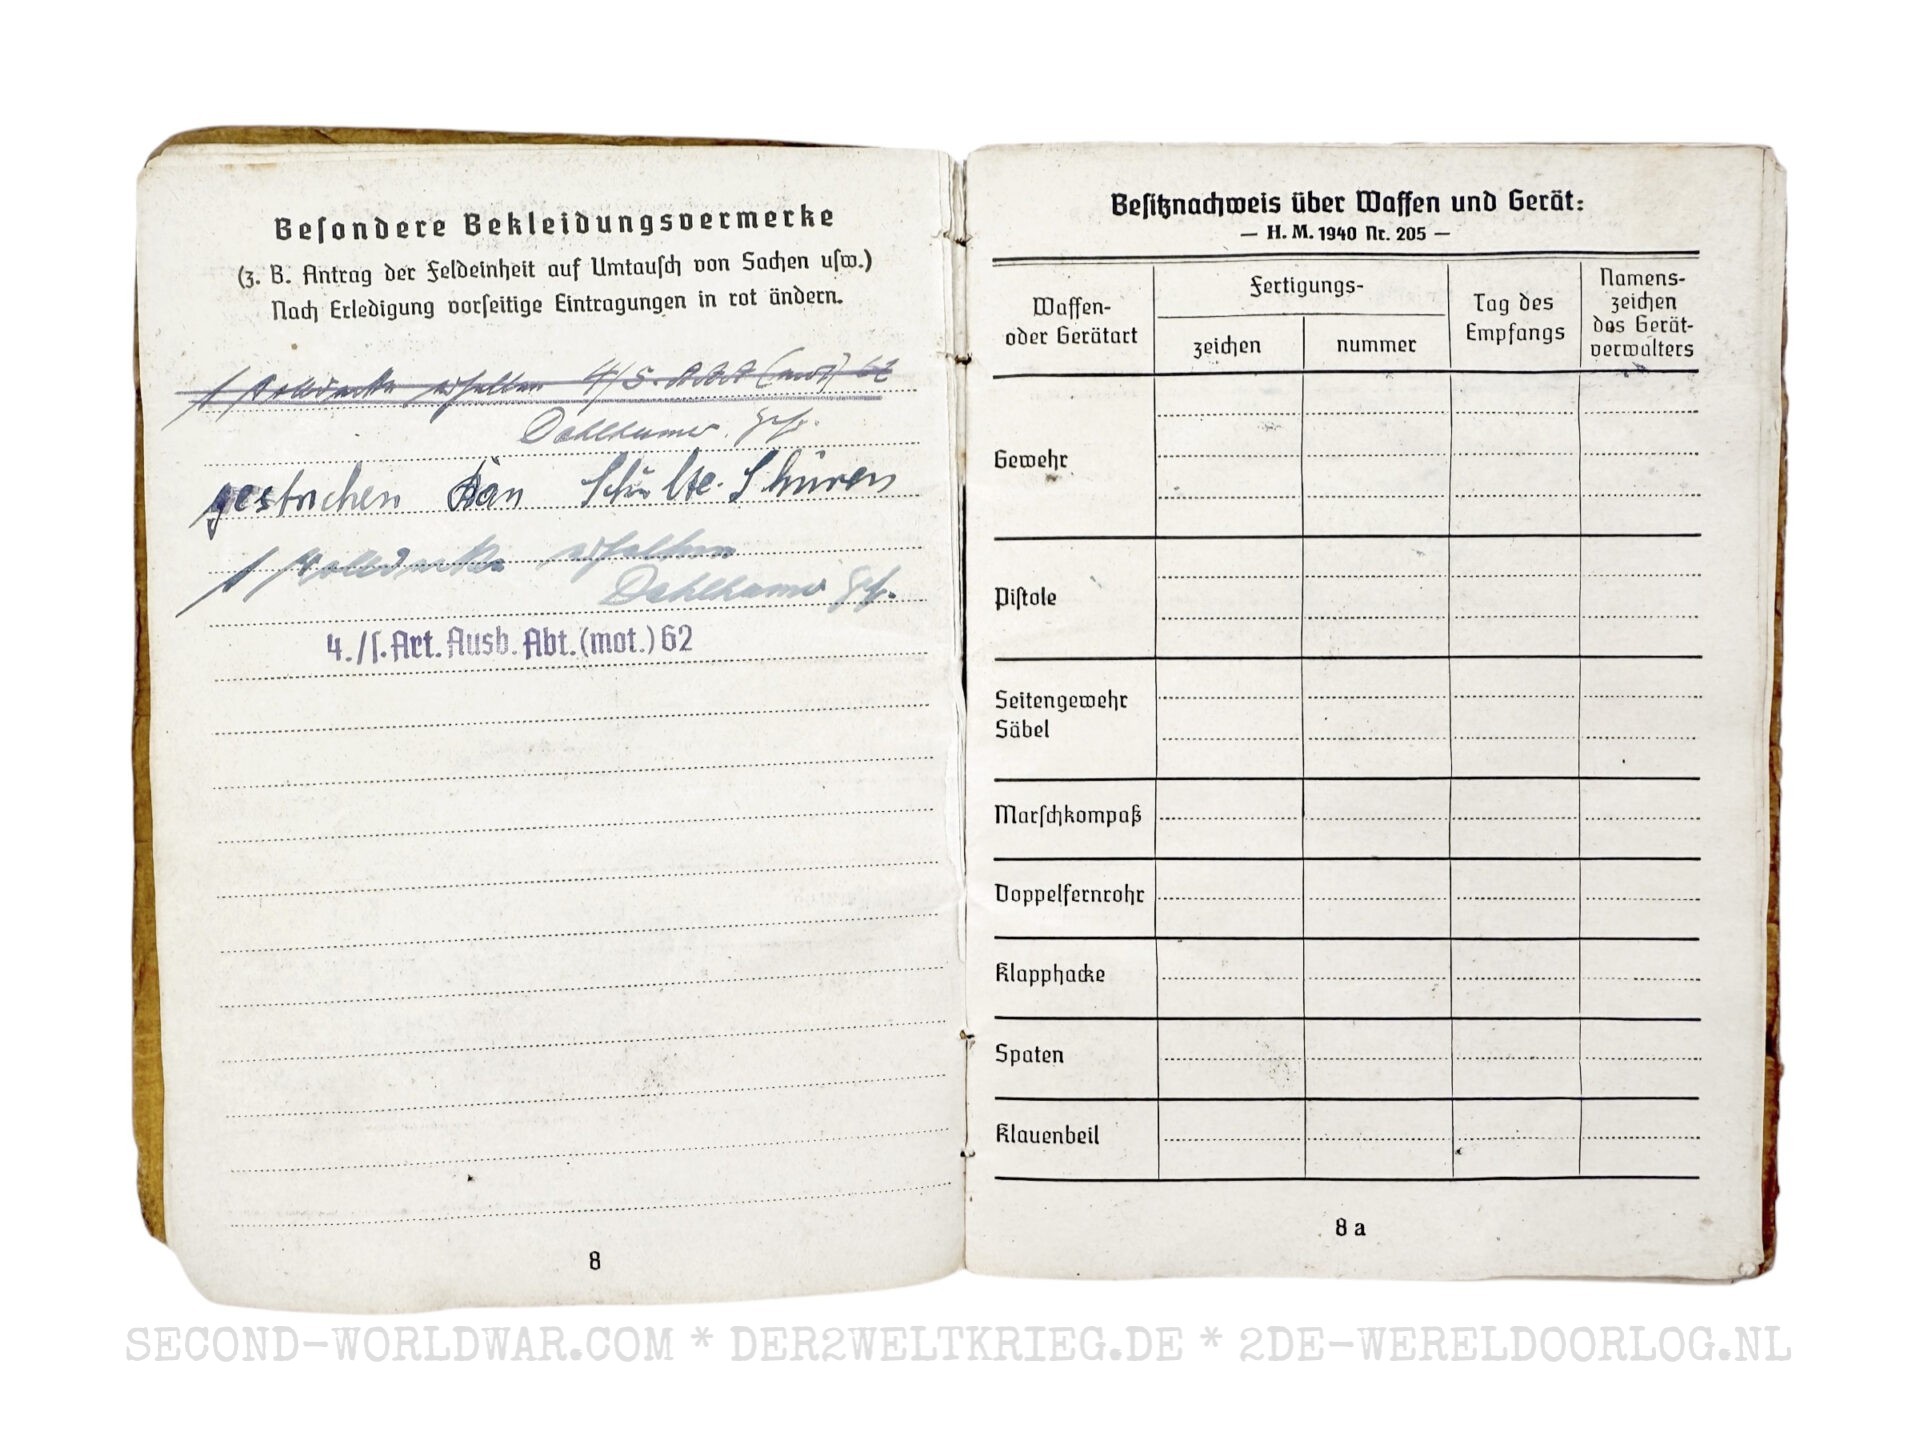 Besondere Bekleidungsvermerke
(z. B. Antrag der Feldeinheit auf Umtausch von Sachen usw.)
Nach Erledigung vorseitige Eintragungen in rot ändern.
1 Wolldecke erhalten 4/s. (mot) 62
Dahlkamp Gefr.
gestrichen Schulte
1 Wolldecke erhalten
Dahlkamp Gefr.
4./s. Art. Ausb. Abt. (mot.) 62
8
Besitznachweis über Waffen und Gerät:
— H. M. 1940 Nr. 205 —
Waffen-
oder Gerätart
Fertigungs-
zeichen
nummer
Tag des
Empfangs
Namens-
zeichen
des Gerät-
verwalters
Gewehr
Pistole
Seitengewehr
Säbel
Marschkompaß
Doppelfernrohr
Klapphacke
Spaten
Klauenbeil
8 a
SECOND-WORLDWAR.COM * DER2WELTKRIEG.DE * 2DE-WERELDOORLOG.NL